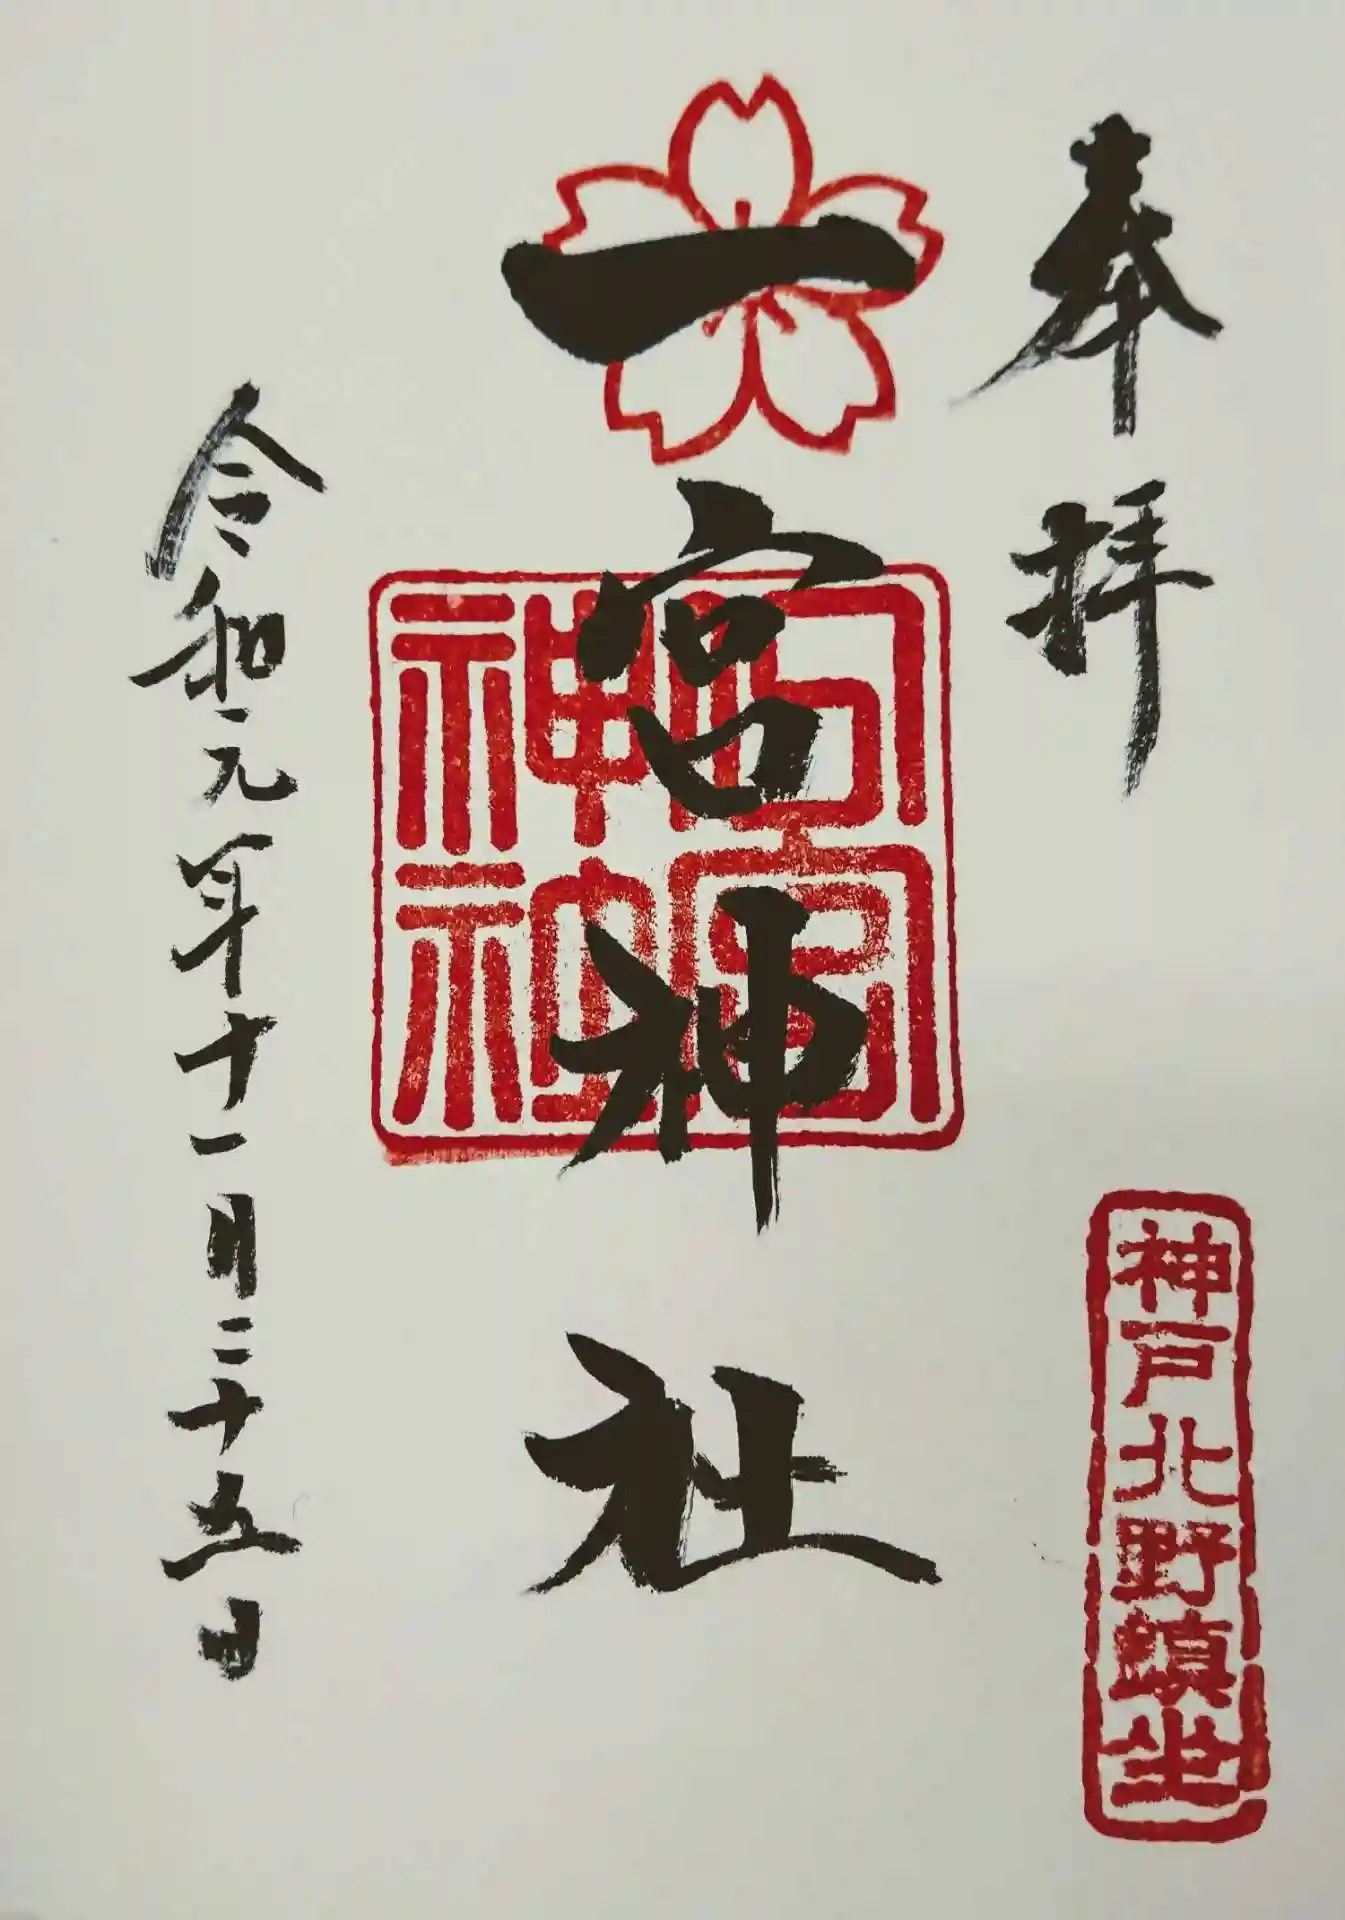 奉拝
神戸北野鎮坐
一宮神社
令和元年十一月二十五日